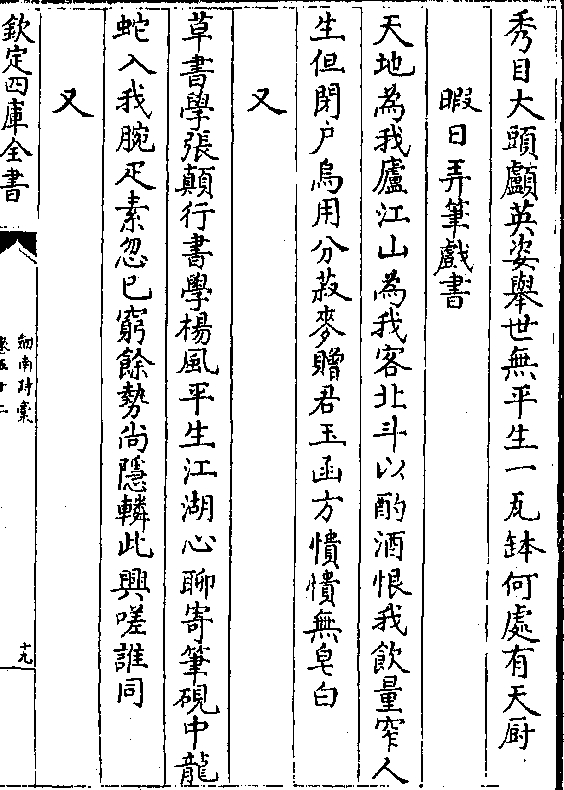 秀目大頭顱英姿舉世無平生一瓦鉢何處有天厨
暇日弄筆戲書
天地為我廬江山為我客北斗以酌酒恨我飲量窄人
生但閉户烏用分菽麥贈君玉函方憒憒無皂白
又
草書學張顛行書學楊風平生江湖心聊寄筆硯中龍
蛇入我腕疋素忽已窮餘勢尚隱轔此興嗟誰同
又
欽定四庫全書
劒南詩藁
卷五十二
十九